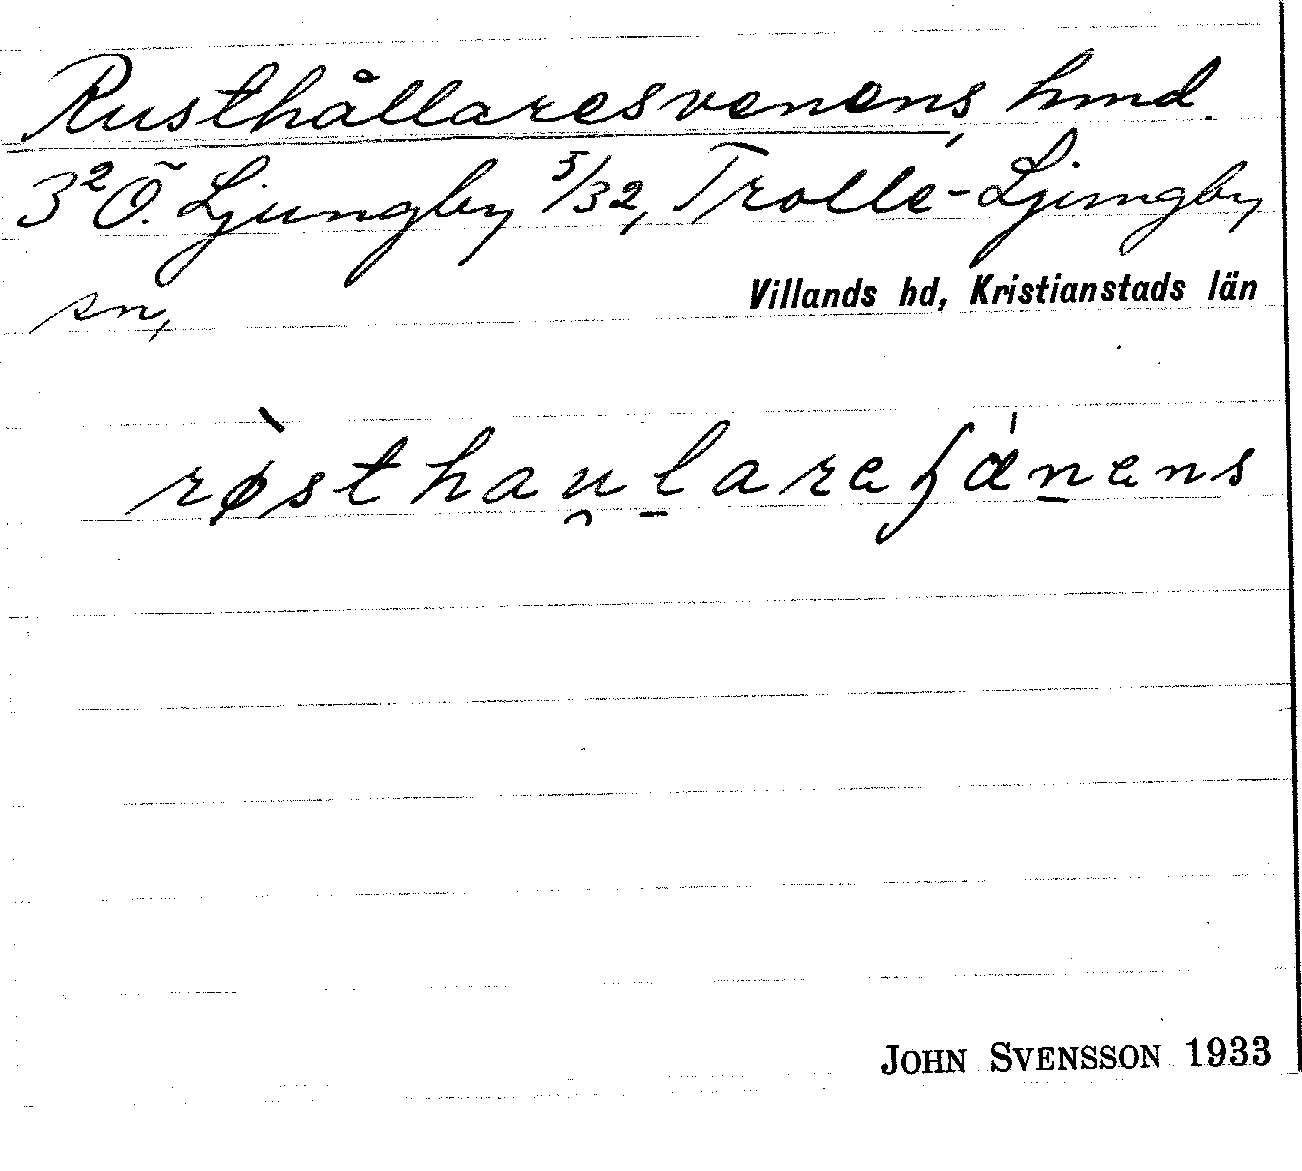 Rusthållaresvenens, hmd.
3² Ö. Ljungby 5/32, Trolle-Ljungby
sn, Villands hd, Kristianstads län
rø̀sthau̯l̠arɐʃɶ́n̠ɐns
JOHN SVENSSON 1933